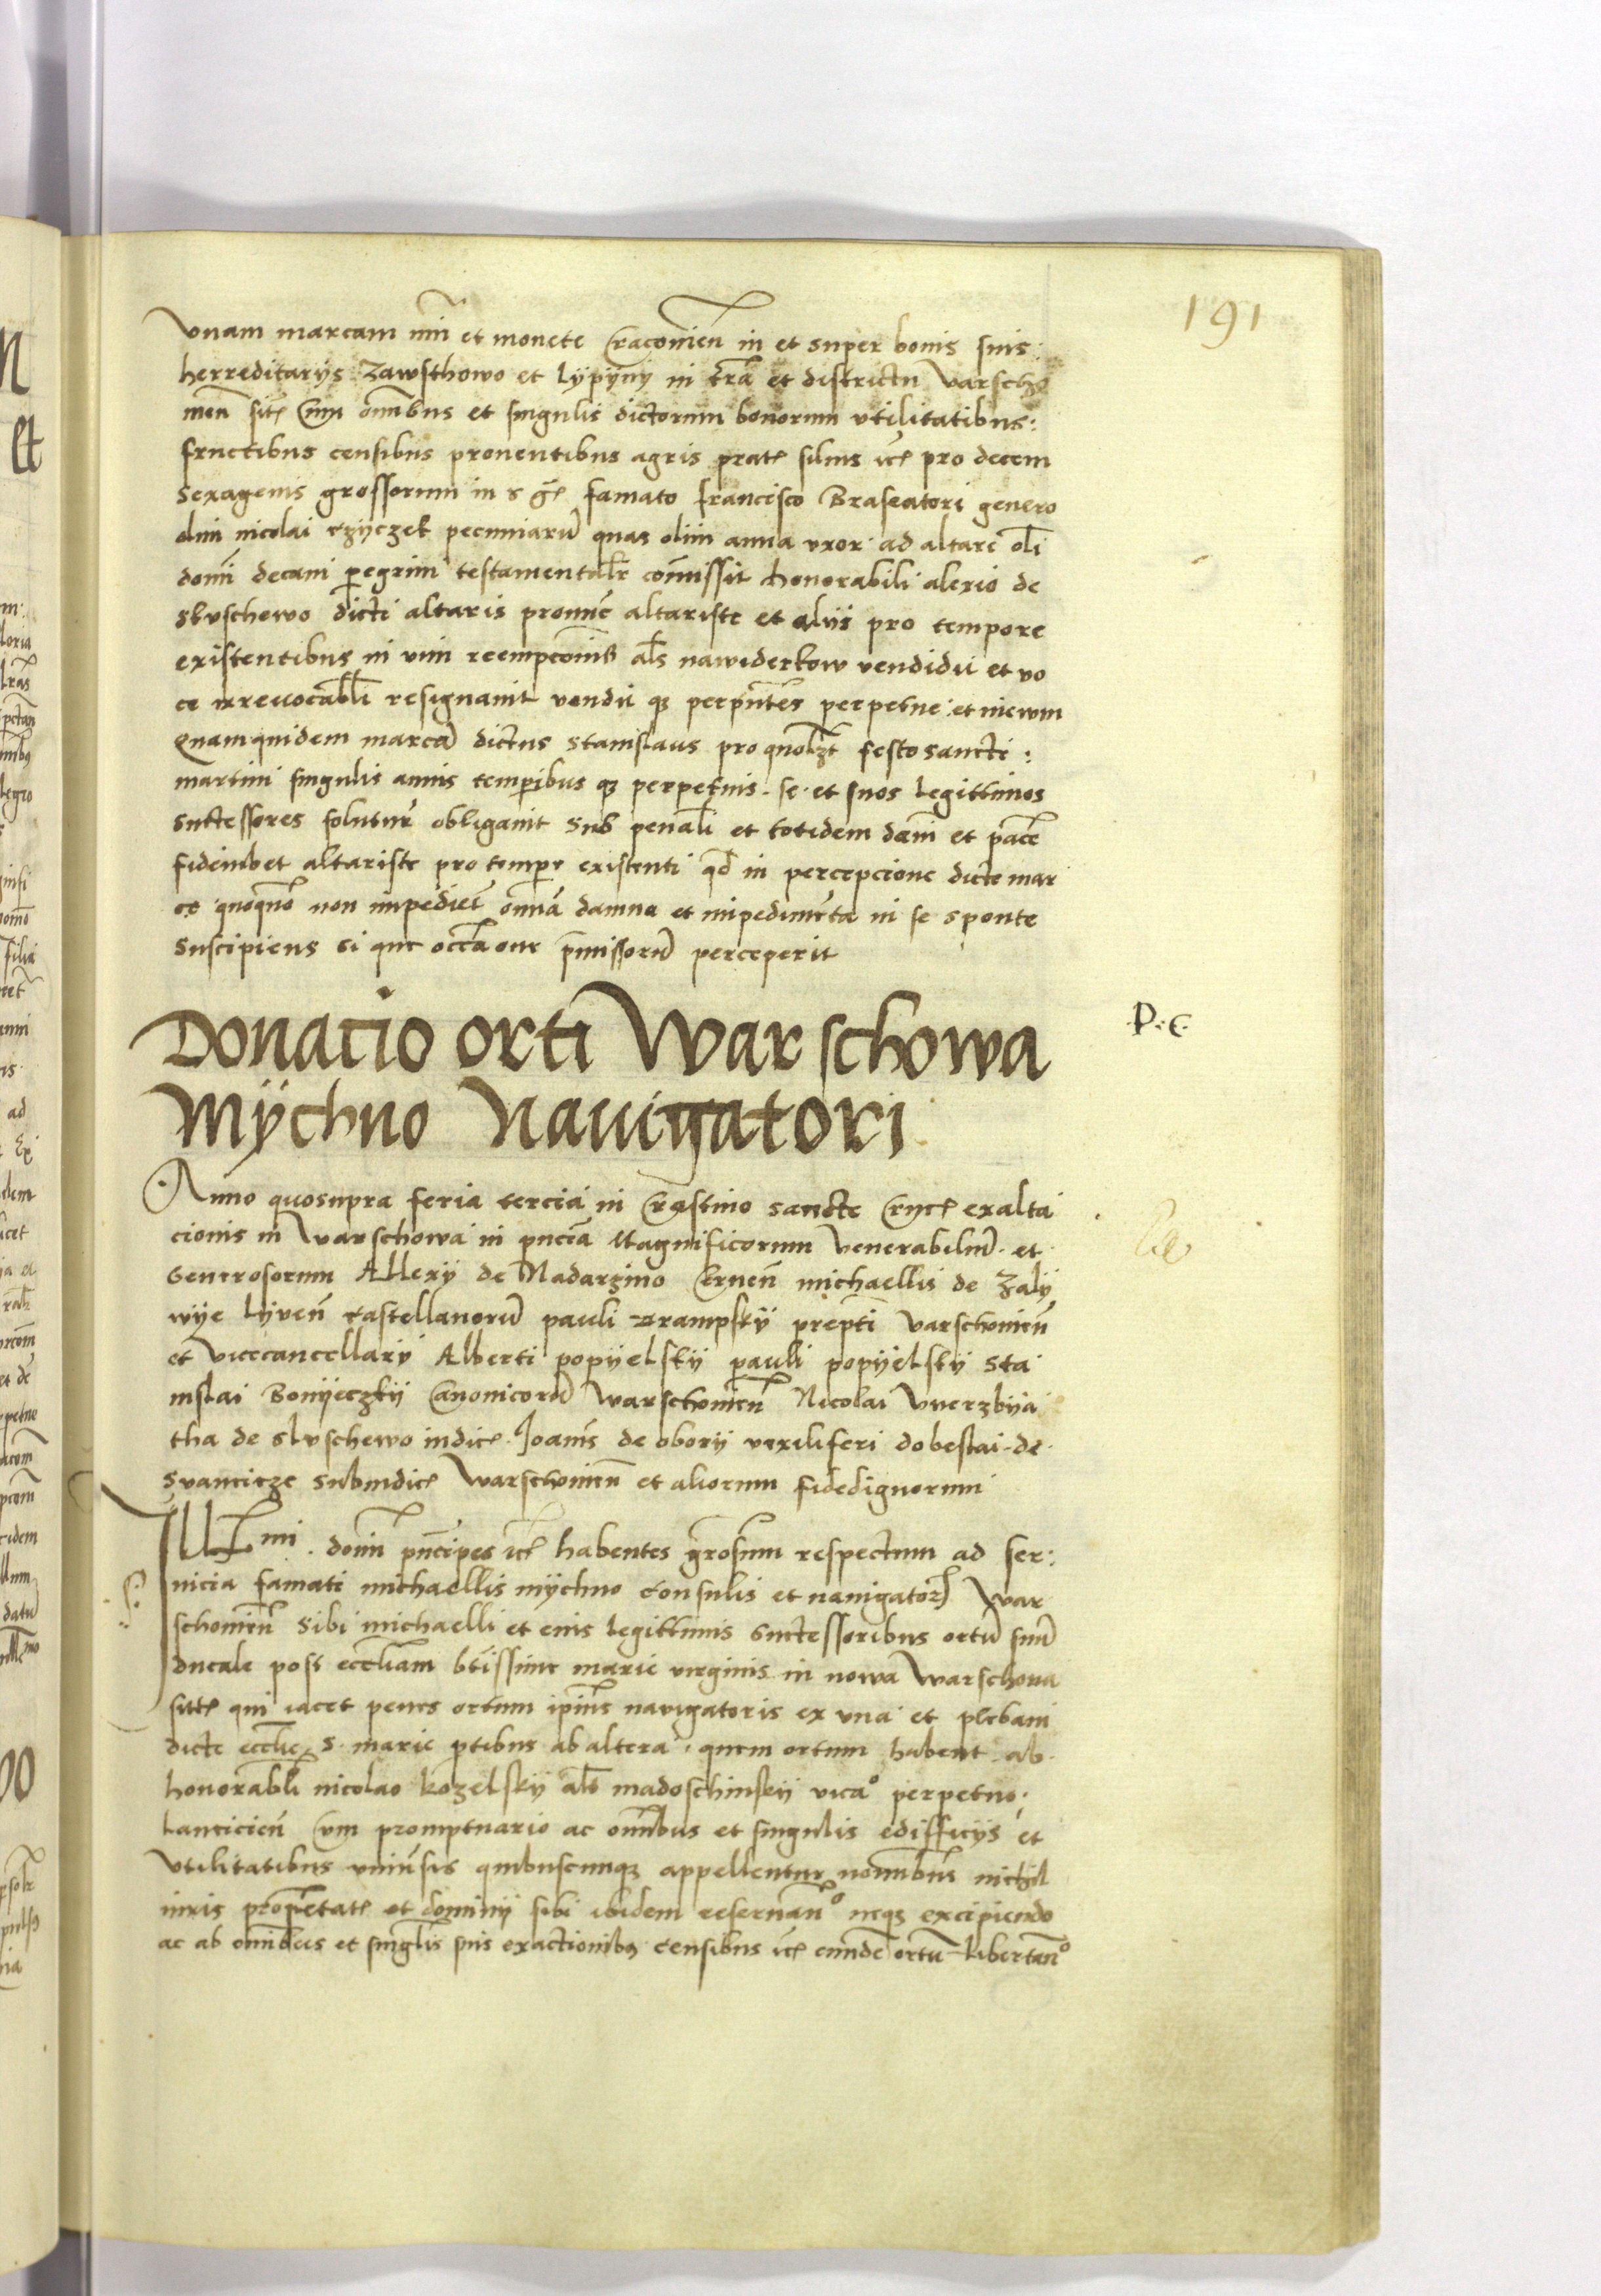 191
Vnam marcam nūi et monete Cracouień in et super bonis suis:
herreditarÿs Zawsthowo et Lÿpÿnÿ in tr̄a et districtu Varscho
uień sit₎ Cum om̄ibus et singulis dictorum bonorum vtilitatibus:
fructibus censibus prouentibus agris prat₎ siluis ic₎ pro decem
sexagenis grossorum in s gr₎ famato francisco Braseatori genero
dni nicolai rzÿczek pecuniarū quas olim anna vxor ad altare oli
domi decani peregrini testamentalr̄ com̄issit honorabili alexio de
slvschewo dicti altaris pronūc altariste et aliis pro tempore
existentibus in vim reempcōnis al̄s nawiderkow vendidit et vo
ce irreuocabl̄i resignauit vendit qȝ per pn̄tes perpetue et in ewm
Quamquidem marcā dictus stanislaus pro quolȝt festo sancti:
martini singulis annis temporibus qȝ perpetuis se et suos legittimos
successores soluturū obligauit sub pena tali et totidem dam̄i et pace
fideiubet altariste pro tempore existenti qd in percepcione dicte mar
ce quoquō non impediet om̄ia damna et impedimēta in se sponte
suscipiens si que occāone p̄missorū perceperit
Donacio orti Warschowa
Mÿchno Nauigatori
P. C.
Anno quosupra feria tercia in Crastino sancte Cruc₎ exalta
cionis in Warschowa in pn̄cia Magnificorum Venerabiliū et
Generosorum Allexÿ de Nadarzino Cernēn michaellis de Zalÿ
wÿe Lÿuen̄ castellanorū pauli Zrampskÿ prepti Varschouień
et Vicecancellarÿ Alberti popÿelskÿ pauli popÿelskÿ Sta
nislai Bonÿeczkÿ Canonicorū Warschouień Nicolai Vverzbÿa
tha de slvschewo iudic₎ Joanīs de oborÿ vexiliferi dobeslai de
Svancicze subiudic₎ Warschouień et aliorum fidedignorum
Ill^mi domī pn̄cipes ic₎ habentes grosum respectum ad ser:
uicia famati michaellis mÿchno consulis et nauigatoris War
schouień sibi michaelli et eius legittimis successoribus ortū suū
ducale post eccl̄iam bt̄issime marie virginis in nowa Warschoua
sitū qui iacet penes ortum ipius nauigatoris ex vna et plebani
dicte eccl̄ie s. marie ptibus ab altera quem ortum habent ab
honorabl̄i nicolao kozelskÿ al̄s madoschinskÿ vica° perpetuo
Lanciciēn Cum promptuario ac om̄ibus et singulis edifficÿs et
vtilitatibus vniūsis quibuscumqȝ appellentur nomībus nichil
iuris proprietat₎ et dominÿ sibi ibidem reseruan̄° neqȝ excipiendo
ac ab om̄ibus et singl̄is suis exactionibȝ censibus ic₎ eundē ortū libertan̄°